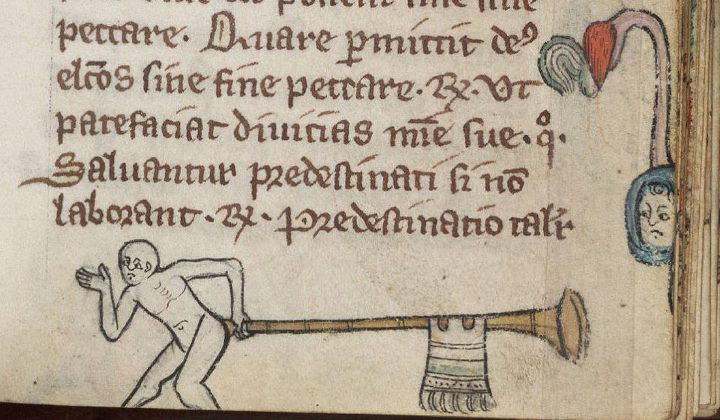 peccare. Quare ꝑmittit deꝰ
elc̄os sine fine peccare. ℞. Ut
patefaciat diuicias mīe sue. q̊.
Saluantur predestinati si nō
laborant. ℞. Predestinatio talr̄